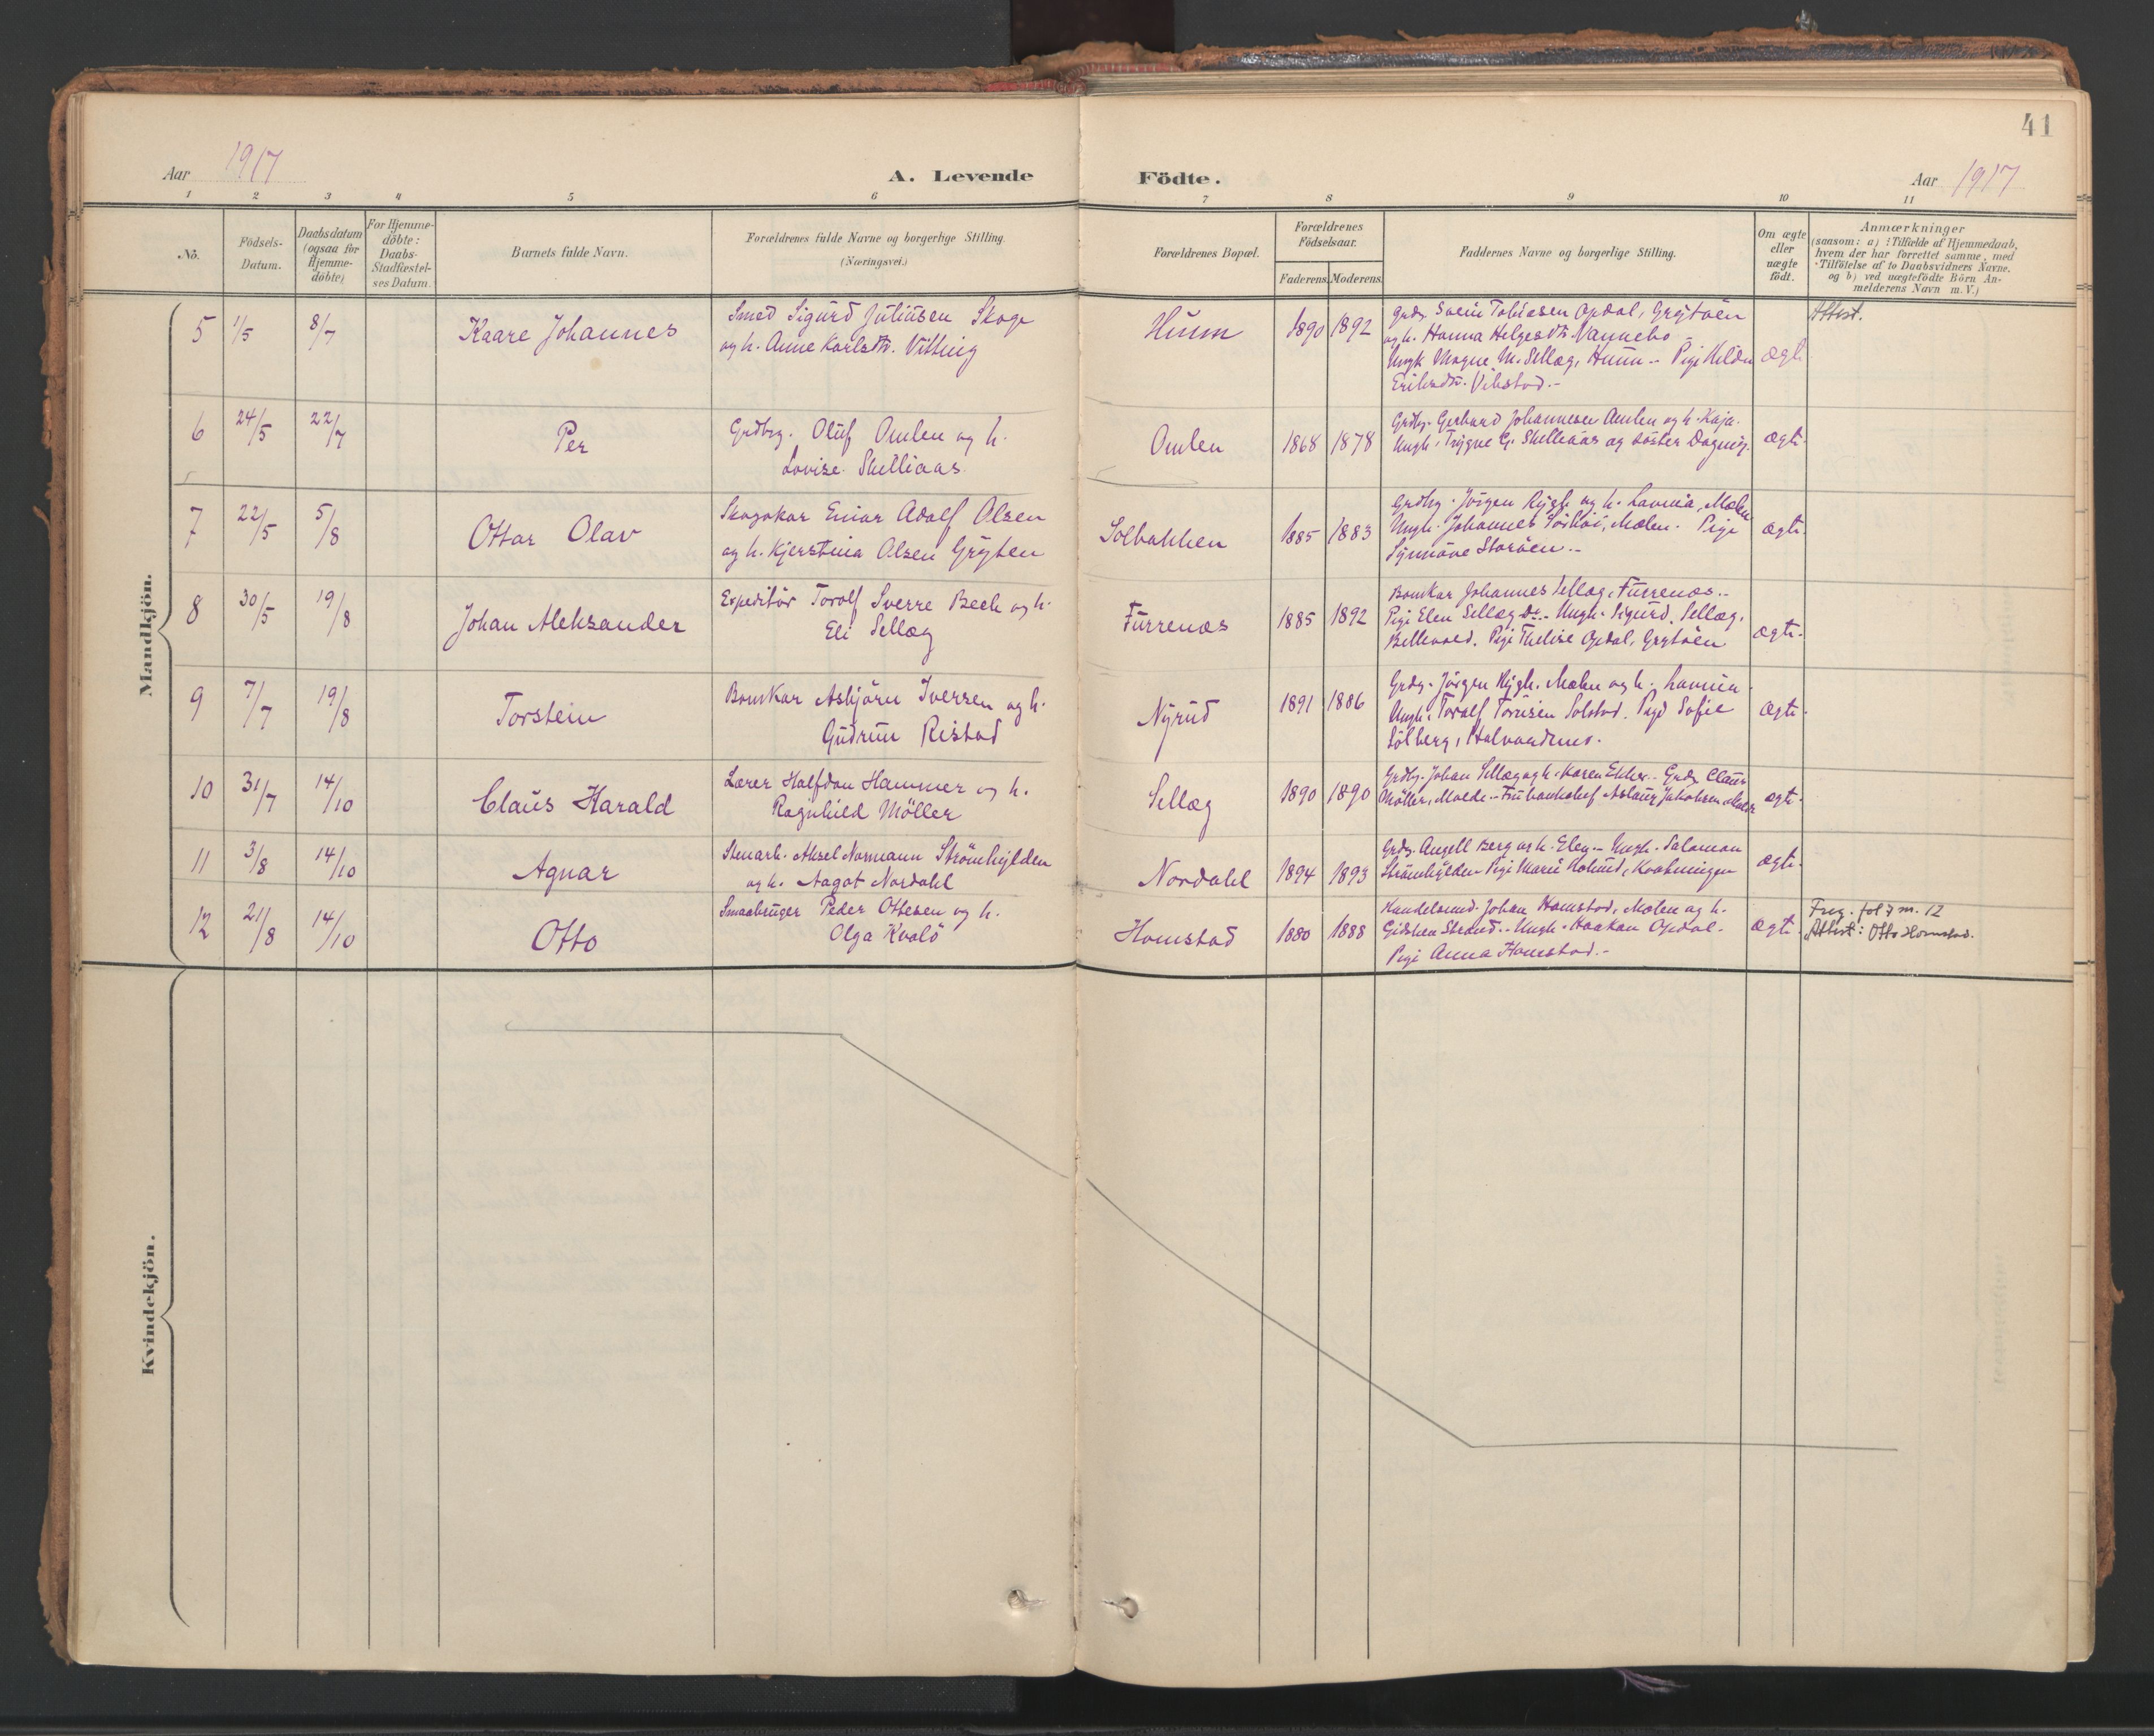 41
Aar 1917
A. Levende
Födte.
Aar 1917
1 2 3 4 5 6 7 8 9 10 11
No.
Födsels-
Datum.
Daabsdatum
(ogsaa for
Hjemme-
döbte)
For Hjemme-
döbte:
Daabs-
Stadfæstel-
ses Datum.
Barnets fulde Navn.
Forældrenes fulde Navne og borgerlige Stilling.
(Næringsvei.)
Forældrenes Bopæl.
Forældrenes
Födselsaar.
Faderens. Moderens.
Faddernes Navne og borgerlige Stilling.
Om ægte
eller
uægte
født.
Anmærkninger
(saasom: a) i Tilfælde af Hjemmedaab,
hvem der har forrettet samme, med
Tilföielse af to Daabsvidners Navne.
og b) ved uægtefödte Börn An-
melderens Navn m. V.)
Mandkjön.
5 1/5 8/7 Kaare Johannes
Smed Sigurd Juliussen Skage
og h. Anne Karlsdtr. Vitting
Huun 1890 1892
Grdr. Svein Tobiasen Opdal, Grytöen
og h. Hanna Helgesdtr. Vannebo
Ungk Magne M. Sellæg, Huun - Pige Hilda
Eriksdtr. Vikstad.-
ægte
Attest.
6 24/5 22/7 Per
Grdbrg. Oluf Omlen og h.
Lovise Skilliaas
Omlen 1868 1878
Grdbg. Gerhard Johannesen Amlen og h. Kaja.
Ungk. Trygve G. Skilliaas og söster Dagny.
ægte.
7 22/5 5/8 Ottar Olav
Skogskar Einar Adolf Olsen
og h. Kjerstina Olsen Gryten
Solbakken 1885 1883
Grdbg. Jörgen Rygh og h. Lavinia, Mælen
Ungk. Johannes Mælen. Pige
Synnöve Storöen.-
ægte.
8 30/5 19/8 Johan Aleksander
Expeditör Torolf Sverre Beck og h.
Eli Sellæg
Furrenæs 1885 1892
Bomkar Johannes Sellæg, Furrenæs.-
Pige Elen Sellæg Do.- Ungk. Sigurd Sellæg,
Bellevoed. Pige Theline Opdal, Grytöen
ægte.
9 7/7 19/8 Torstein
Bomkar Asbjörn Iversen og h.
Gudrun Ristad
Nyrud 1891 1886
Grdbg. Jörgen Rygh. Mælen og h. Lavinia.
Ungk. Toralf Solstad. Pige Sofie
Solberg, Halvardmo.
ægte.
10 31/7 14/10 Claus Harald
Lærer Halfdan Hammer og h.
Ragnhild Möller
Sellæg 1890 1890
Grdbg. Johan Sellæg og h. Karen Elden.- Grdr Claus
Möller, Molde.- Fru Aslaug Jakobsen Molde
ægte.
11 3/8 14/10 Agnar
Stenarb. Aksel Normann Strömhylden
og h. Aagot Nordahl
Nordahl 1894 1893
Grdr. Angell Berg og h. Elen.- Ungk. Salamon
Strömhylden Pige Marie Holund, Kvatningen
ægte.
12 21/8 14/10 Otto
Smaabruger Peder Ottesen og h.
Olga Kvalö
Homstad 1880 1888
Handelsmd. Johan Homstad, Mælen og h.
Gidsken Strand.- Ungk. Haakon Opdal.
Pige Anna Homstad.-
ægte.
Freg. fol 7 m. 12
Attest: Otto Homstad.
Kvindekjön.